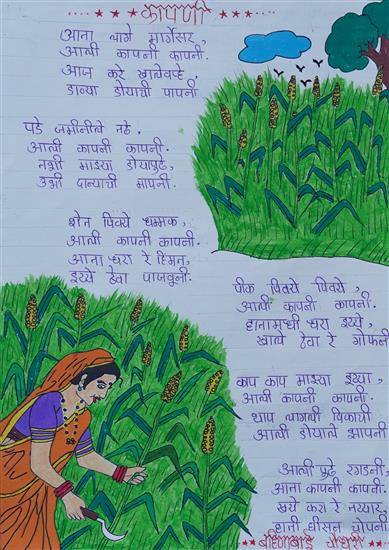 कापणी
आता लागे मार्गेसर,
आली कापनी कापनी.
आज करे खालेवऱ्हे,
डाव्या डोयाची पापनी.
पडे जमीनीले तढे,
आली कापनी कापनी.
तशी माझ्या डोयापुढे,
उभी दान्याची मापनी.
शेत पिवये धम्मक,
आली कापनी कापनी.
आता धरा रे हिंमत,
इय्ये ठेवा पाजवुनी.
पीक पिवये पिवये,
आली कापनी कापनी.
हातामधी धरा इय्ये,
खाले ठेवा रे गोफनी
काप काप माझ्या इय्या,
आली कापनी कापनी.
थाप लागली पिकाची
आली डोयाले झापनी
आली पुढे रगडनी,
आता कापनी कापनी.
खये करा रे तय्यार,
हाती घीसन चोपनी
बहिणाबाई चौधरी